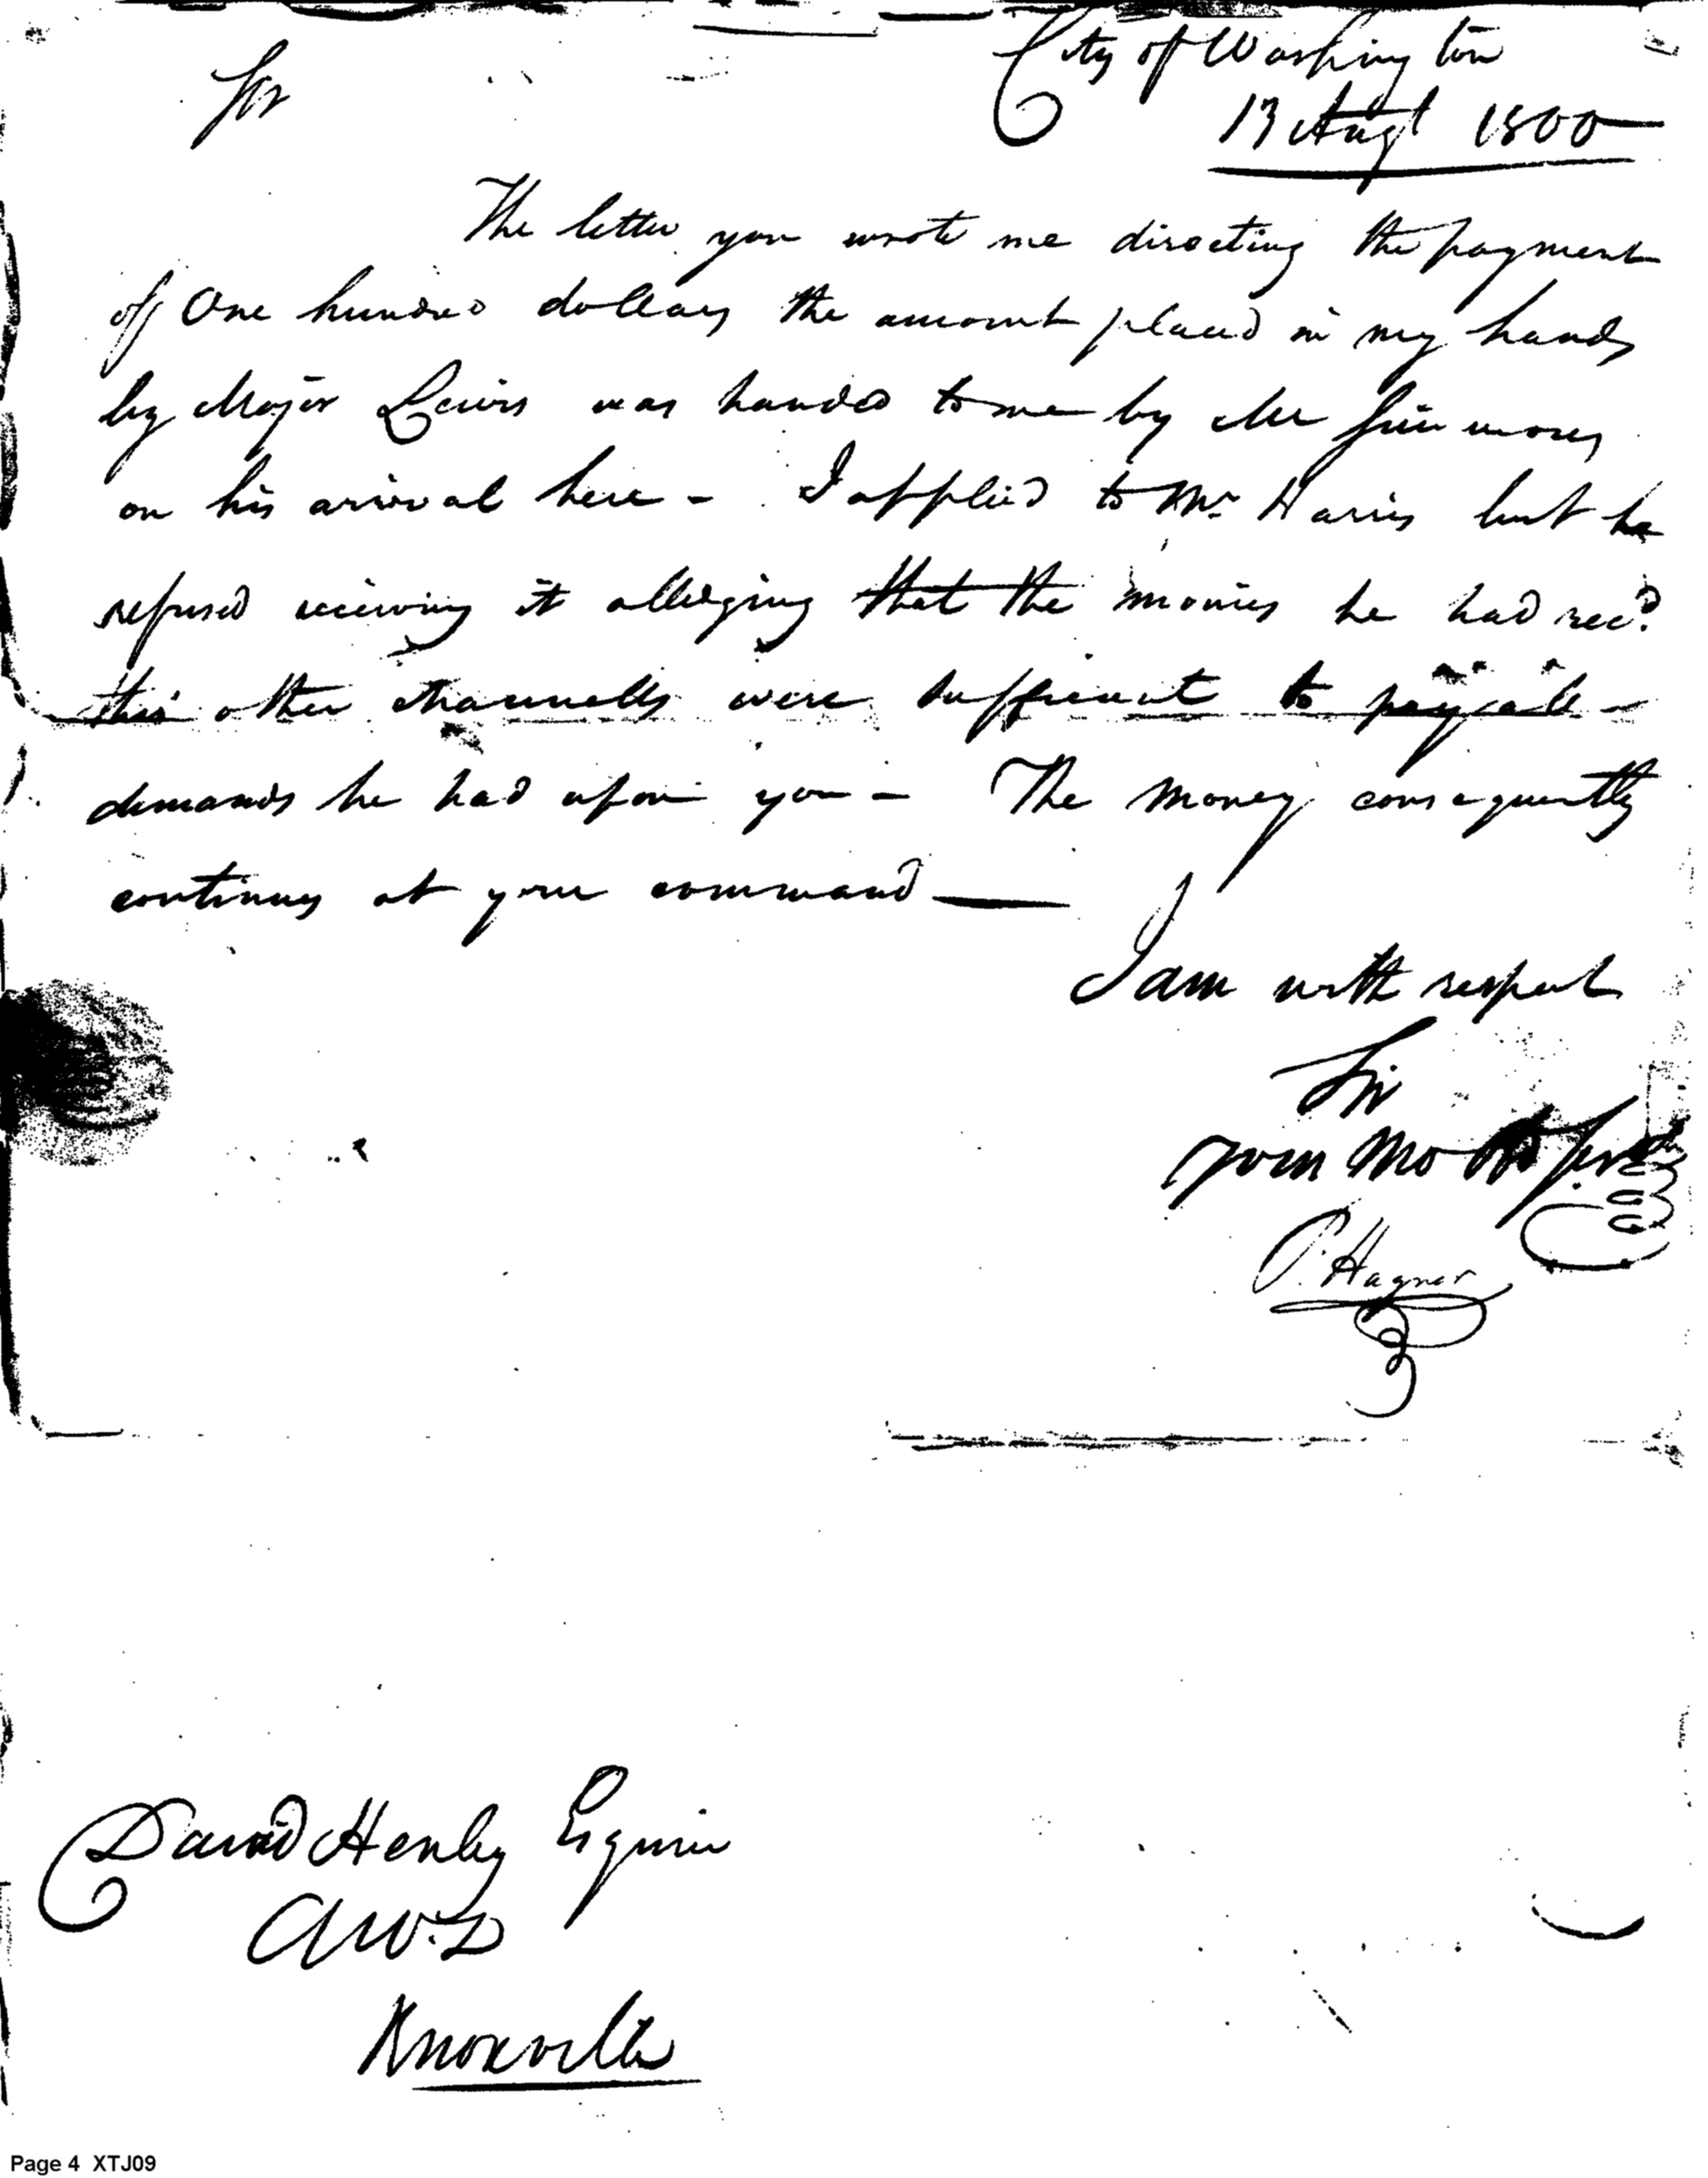 City of Washington
Sir
13 Augt 1800
The letter you wrote me directing the payment
of One hundred dollars the amount placed in my hands
by Major Lewis was handed to me by Mr
on his arrival here - I applied to Mr. Harris but he
refused receiving it alledging that the monies he had recd.
thro' other channells were sufficient to pay all
demands he had upon you - The money consequently
continues at your command
I am with respect
Sir
Your Mo Obt
P. Hagner
David Henley Esquire
AWD
Knoxville
Page 4 XTJ09